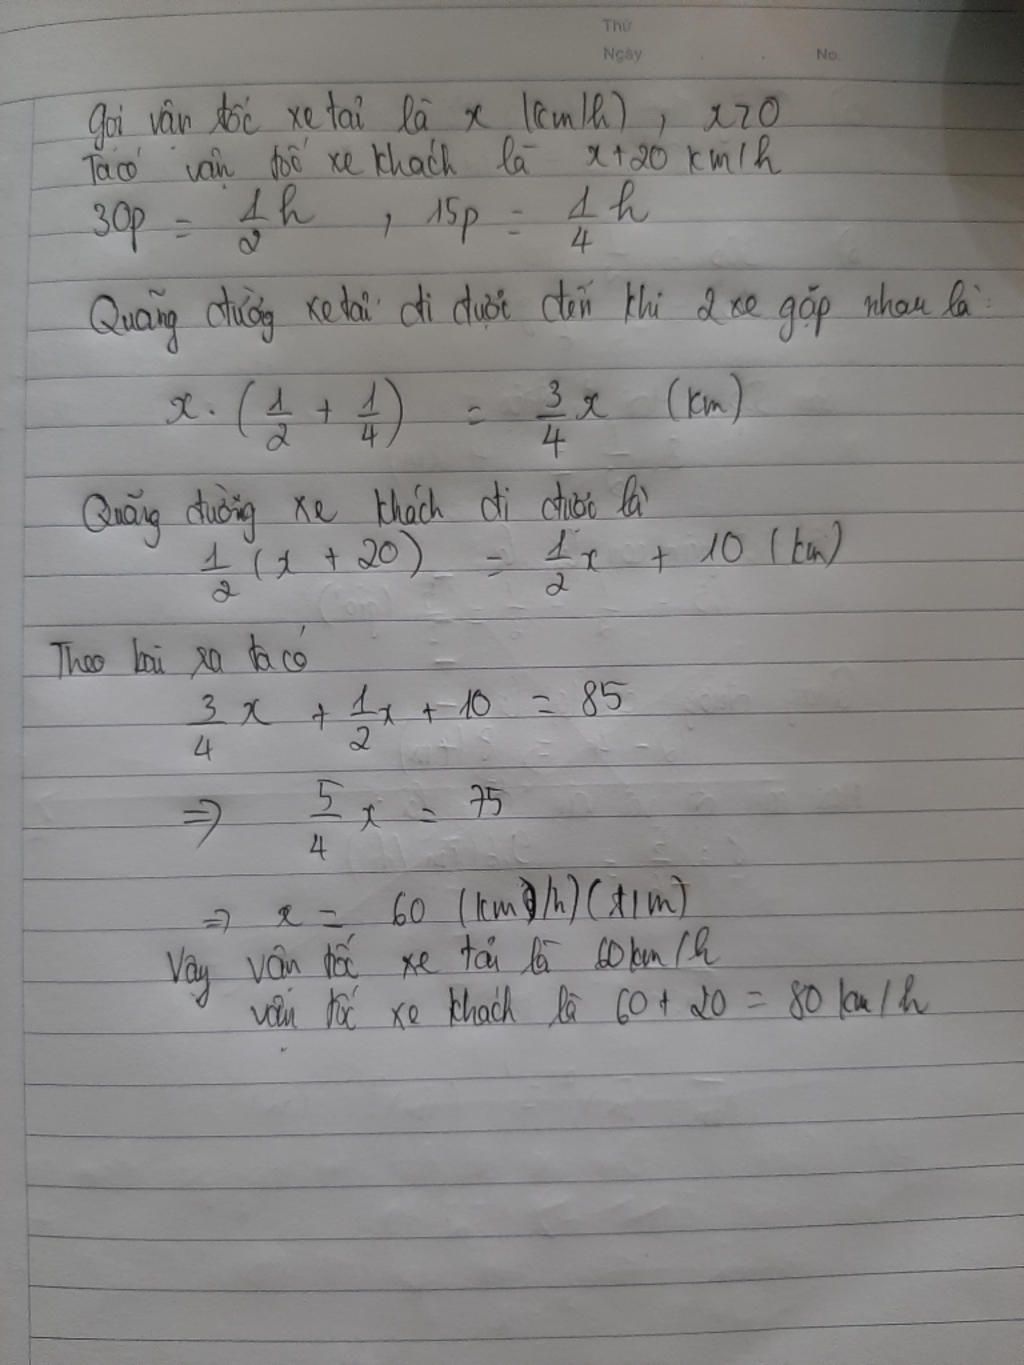 Thứ
Ngày
No
Gọi vận tốc xe tải là x (km/h), x>0
Ta có vận tốc xe khách là x+20 km/h
30p = 1/2 h , 15p = 1/4 h
Quãng đường xe tải đi được đến khi 2 xe gặp nhau là:
x. (1/2 + 1/4) = 3/4 x (km)
Quãng đường xe khách đi được là
1/2 (x + 20) = 1/2 x + 10 (km)
Theo bài ra ta có
3/4 x + 1/2 x + 10 = 85
=> 5/4 x = 75
=> x = 60 (km/h) (t/m)
Vậy vận tốc xe tải là 60km/h
vận tốc xe khách là 60+20 = 80 km/h